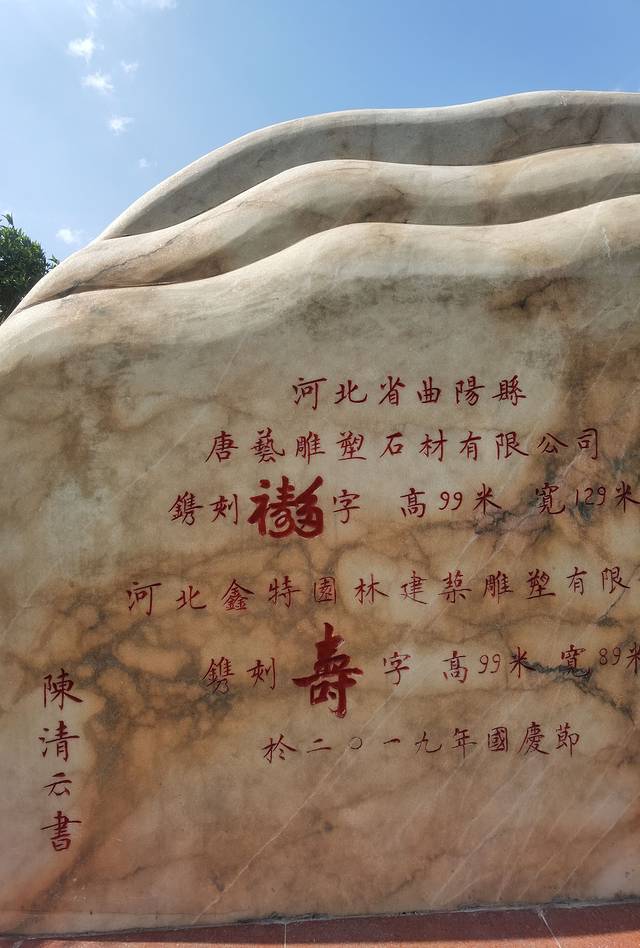 河北省曲陽縣
唐藝雕塑石材有限公司
鐫刻福字 高99米 寬129米
河北鑫特園林建築雕塑有限
鐫刻壽字 高99米 寬89米
於二〇一九年國慶節
陳清云書